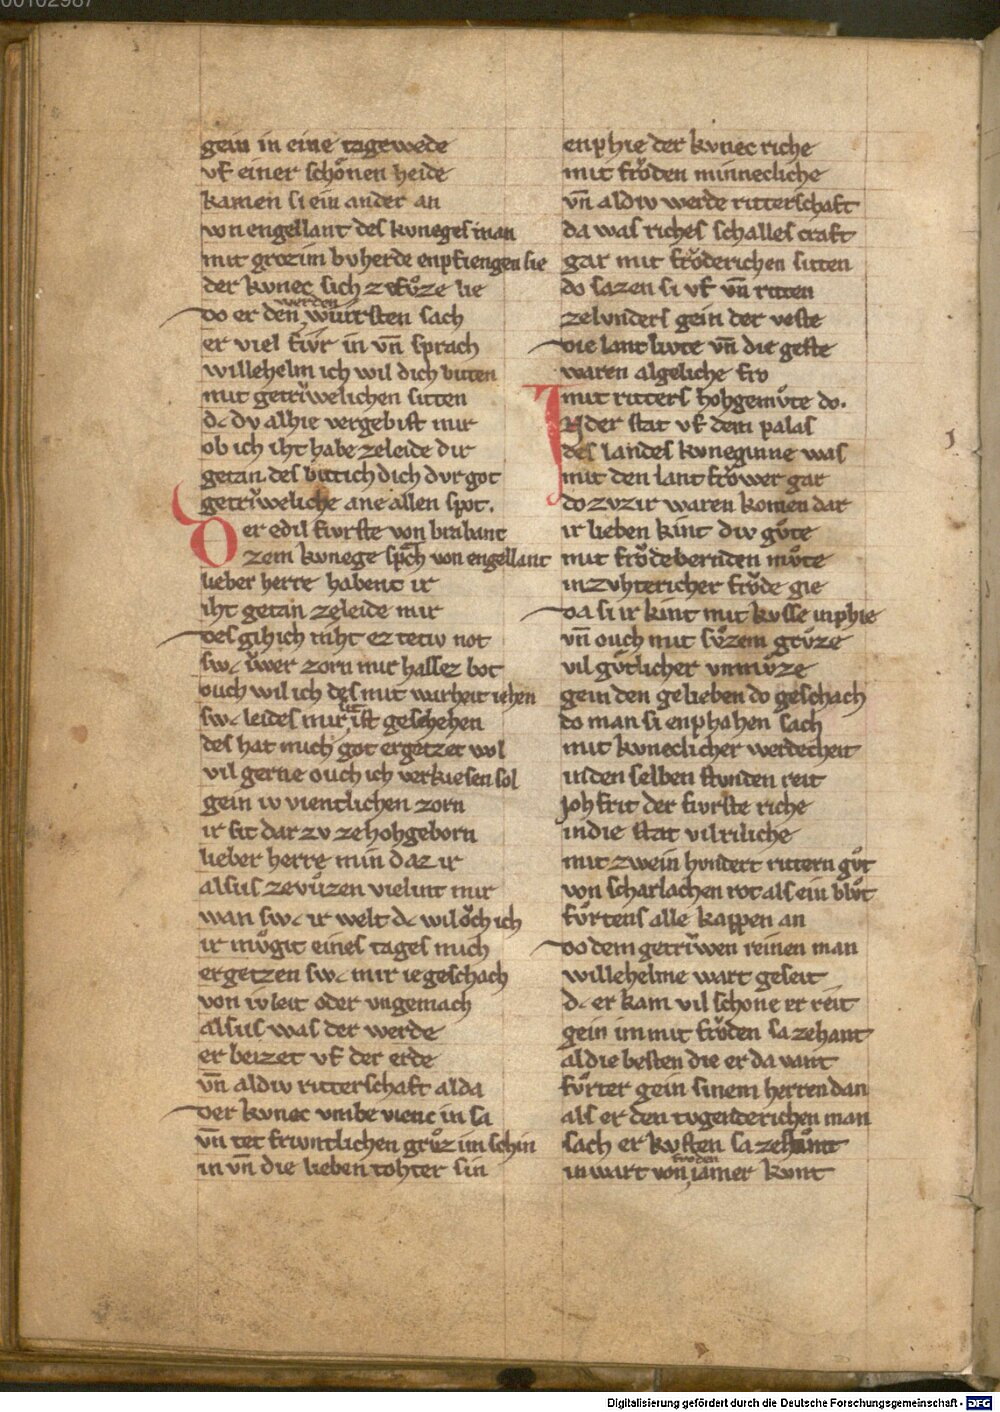 00102987
gein in eine tagewede
vf einer schönen heide
kamen si ein ander an
von engellant des kuneges man
mit grozim bvherde enpfiengen sie
der kvnec sich zefvͦze lie
do er den werden fúrsten sach
er viel fúr in vn̄ sprach
willehelm ich wil dich bitten
mit getrúwelichen sitten
dc dv alhie vergebist mir
ob ich iht habe zeleide dir
getan des bittich dich dvr got
getrúweliche ane allen spot.
Der edil fúrste von brabant
zem kvnege sprͣch von engellant
lieber herre habent ir
iht getan zeleide mir
des gihich niht ez tetiv not
swc úwer zorn mir hassez bot
ouch wil ich des mit warheit iehen
swc leides mir ist geschehen
des hat mich got ergetzet wol
vil gerne ouch ich verkiesen sol
gein iv vientlichen zorn
ir sit dar zv ze hohgeborn
lieber herre min daz ir
alsus zevvͦzen vielint mir
wan swc ir welt dc wil oͮch ich
ir mvͦgit eines tages mich
ergetzen swc mir ie geschach
von iv leit oder vngemach
alsus was der werde
er beizet vf der erde
vn̄ aldiv ritterschaft alda
der kvnec vmbe vienc in sa
vn̄ tet frivntlichen grvͦz im schin
in vn̄ die lieben tohter sin
enphie der kvnec riche
mit froͮden minnecliche
vn̄ aldiv werde ritterschaft
da was riches schalles craft
gar mit froͮderichen sitten
do sazen si vf vn̄ ritten
zelvnders gein der veste
die lantlivte vn̄ die geste
waren algeliche fro
mit ritters hohgemvͦte do.
IN der stat vf dem palas
des landes kvneginne was
mit den lantfroͮwen gar
do zvzir waren komen dar
ir lieben kint div gvͦte
mit froͮdebernden mvͦte
in zvhtericher froͮde gie
da si ir kint mit kvsse inphie
vn̄ ouch mit svͦzem grvͦze
vil gvͦtlicher vnmvͦze
gein den gelieben do geschach
do man si enphahen sach
mit kvneclicher werdecheit
inden selben stvnden reit
Johfrit der fivrste riche
indie stat vil riliche
mit zwein hvndert rittern gvͦt
von scharlachen rot als ein blvͦt
fvͦrtens alle kappen an
do dem getrúwen reinen man
willehelme wart geseit
dc er kam vil schone er reit
gein im mit froͮden sa zehant
al die besten die er da vant
fvͦrter gein sinem herren dan
als er den tvgenderichen man
sach er kvsten sa zestvnt
in wart von froͮden iamer kvnt
Digitalisierung gefördert durch die Deutsche Forschungsgemeinschaft - DFG